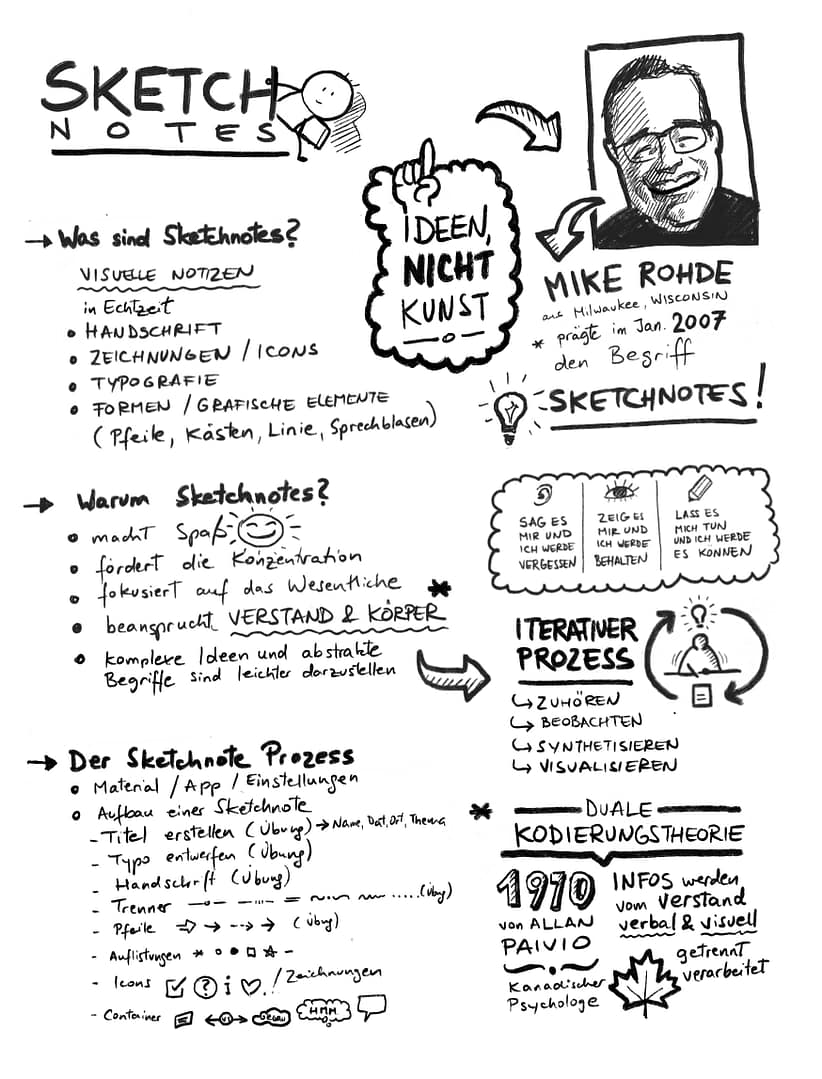 SKETCH
NOTES
IDEEN,
NICHT
KUNST
MIKE ROHDE
aus Milwaukee, WISCONSIN
* prägte im Jan. 2007
den Begriff
SKETCHNOTES!
→ Was sind Sketchnotes?
VISUELLE NOTIZEN
in Echtzeit
• HANDSCHRIFT
• ZEICHNUNGEN / ICONS
• TYPOGRAFIE
• FORMEN / GRAFISCHE ELEMENTE
(Pfeile, Kästen, Linie, Sprechblasen)
→ Warum Sketchnotes?
• macht Spaß
• fördert die Konzentration
• fokusiert auf das Wesentliche
• beansprucht VERSTAND & KÖRPER *
• komplexe Ideen und abstrakte
Begriffe sind leichter darzustellen
SAG ES
MIR UND
ICH WERDE
VERGESSEN
ZEIG ES
MIR UND
ICH WERDE
BEHALTEN
LASS ES
MICH TUN
UND ICH WERDE
ES KÖNNEN
ITERATIVER
PROZESS
↳ ZUHÖREN
↳ BEOBACHTEN
↳ SYNTHETISIEREN
↳ VISUALISIEREN
→ Der Sketchnote Prozess
• Material / App / Einstellungen
• Aufbau einer Sketchnote
- Titel erstellen (Übung) → Name, Dat, Ort, Thema
- Typo entwerfen (Übung)
- Handschrift (Übung)
- Trenner (Übung)
- Pfeile (Übung)
- Auflistungen
- Icons ? i ! / Zeichnungen
- Container
HMM
* DUALE
KODIERUNGSTHEORIE
1970
von ALLAN
PAIVIO
Kanadischer
Psychologe
INFOS werden
vom Verstand
verbal & visuell
getrennt
verarbeitet